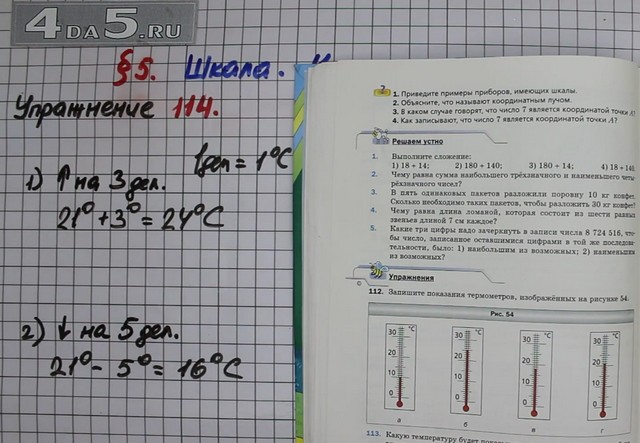 4DA5.RU
§5. Шкала.
Упражнение 114.
1 дел = 1°С
1) ↑ на 3 дел.
21° + 3° = 24°С
2) ↓ на 5 дел.
21° - 5° = 16°С
1. Приведите примеры приборов, имеющих шкалы.
2. Объясните, что называют координатным лучом.
3. В каком случае говорят, что число 7 является координатой точки
4. Как записывают, что число 7 является координатой точки A?
Решаем устно
1. Выполните сложение:
1) 18 + 14; 2) 180 + 140; 3) 180 + 14; 4) 18 + 140
2. Чему равна сумма наибольшего трёхзначного и наименьшего
рёхзначного числа?
3. В пять одинаковых пакетов разложили поровну 10 кг конфет.
Сколько необходимо таких пакетов, чтобы разложить 30 кг конфет
4. Чему равна длина ломаной, которая состоит из шести равных
звеньев длиной 7 см каждое?
5. Какие три цифры надо зачеркнуть в записи числа 8 724 516, что-
бы число, записанное оставшимися цифрами в той же последова
тельности, было: 1) наибольшим из возможных; 2) наименьшим
из возможных?
Упражнения
112. Запишите показания термометров, изображённых на рисунке 54.
Рис. 54
°С °С °С °С
30 30 30 30
20 20 20 20
10 10 10 10
0 0 0 0
а б в г
113. Какую температуру будет